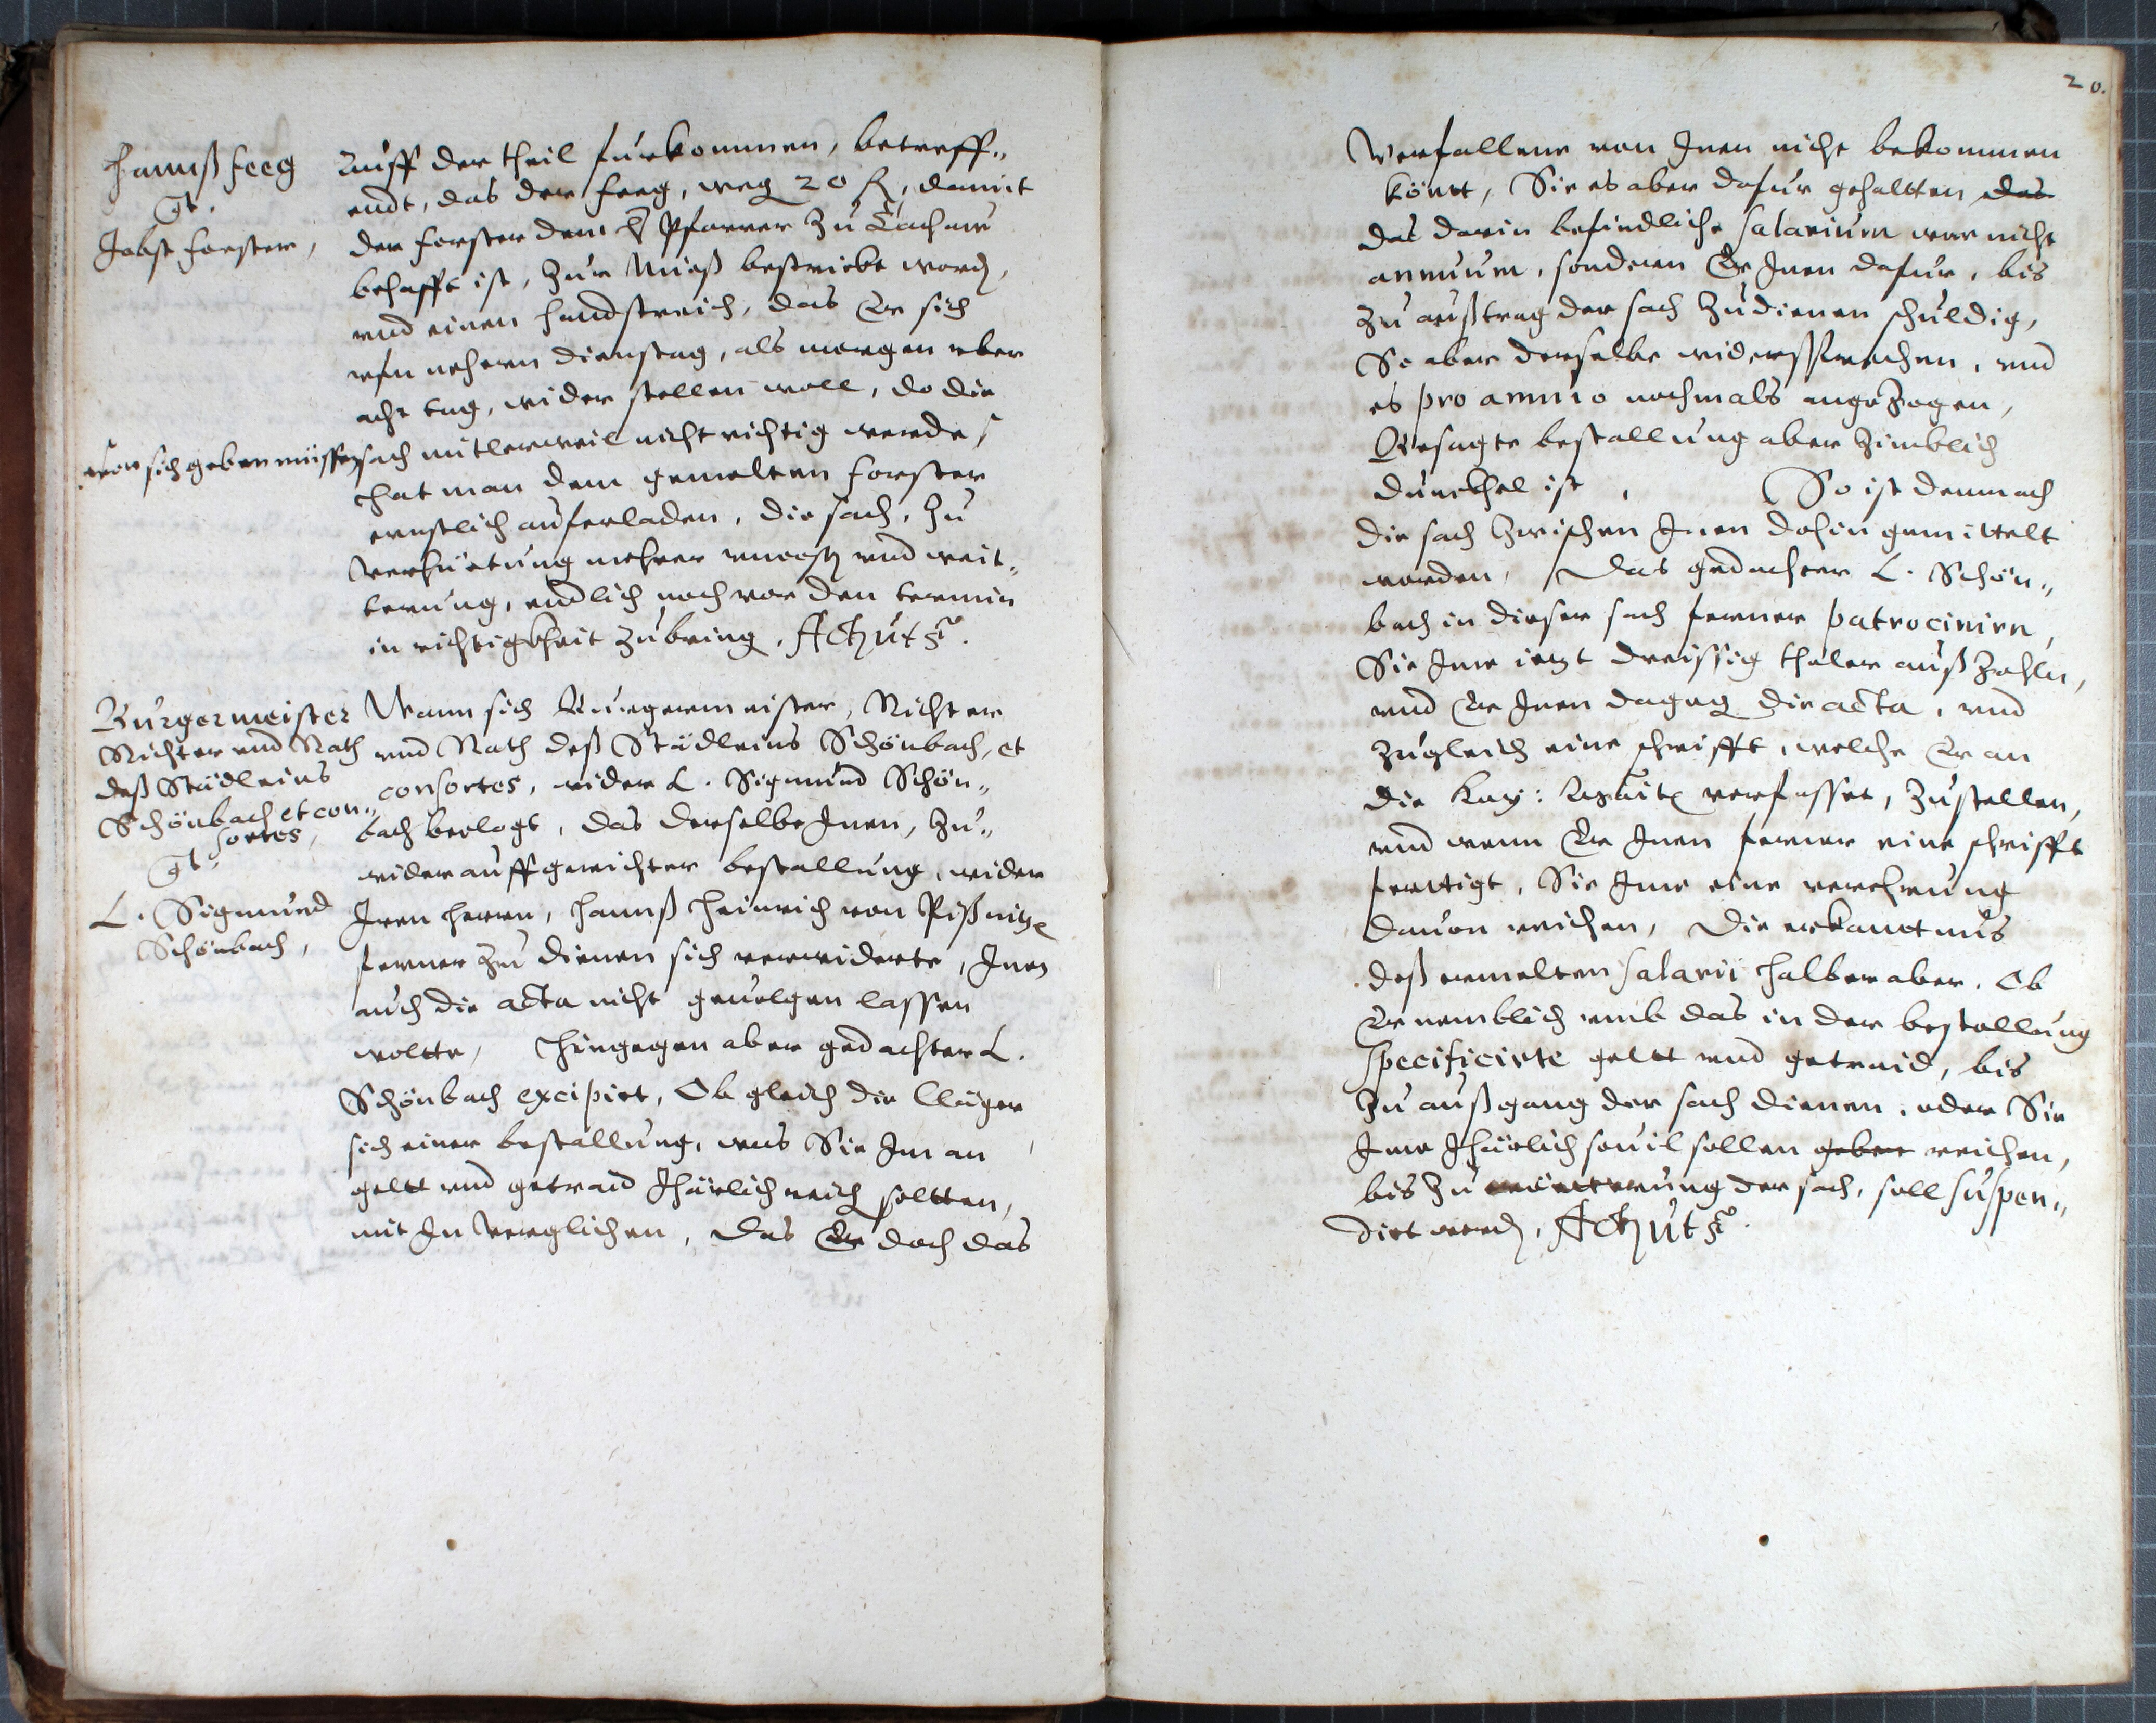 Hannß Feeg
Ct.
Jobst Forster,
Auff der theil furkommen, betreff„
endt, das der Feeg, weg 20 fl, damit
der Forster dem H Pfarrer zu
behafft ist, zur bestrickt word,
vnd einen handstreich, das Er sich
vfn nehern dienstag, als morgen vber
acht tag, wider stellen woll, do die
von sich geben müssen
sach mitlerweil nicht richtig werde,
hat man dem gemelten Forster
ernstlich auferladen, die sach, zu
verhüetung mehrer vncosten vnd weit„
terung, endlich noch vor den termin
in richtigkheit zubring. Act ut s.
Burgermeister
Richter vnd Rath
deß Städleins
Schönbach et con„
sortes,
Ct.
L. Sigmund
Schönbach,
Wann sich Burgermeister, Richter
vnd Rath deß Städleins Schönbach, et
consortes, wider L. Sigmund Schön„
bach beclagt, das derselbe Inen, zu„
wider auffgerichter bestallung, wider
Iren herrn, Hannß Heinrich von
ferner zu dienen sich verwiderte, Inen
auch die acta nicht geuolgen lassen
woltte, Hingegen aber gedachter L.
Schönbach excipirt, Ob gleich die Cläger
sich einer bestallung, was Sie Im an
geltt vnd getraid Jhärlich reich soltten,
mit In verglichen, das Er doch das
20.
Verfallene von Inen nicht bekommen
köntt, Sie es aber dafur gehaltten das
das darin befindliche salarium war nicht
annuum, sondern Er Inen dafur, bis
zu außtrag der sach zudienen schuldig,
So aber derselbe widersprechen, vnd
es pro annuo nochmals angezogen,
Besagte bestallung aber zimblich
dunckhel ist, So ist demnach
die sach zwischen Inen dahin gemittelt
worden, Das gedachter L. Schön„
bach in dieser sach ferner patrocinirn,
Sie Ime ietzt dreissig thaler außzahln,
vnd Er Inen dageg die acta, vnd
zugleich eine schrifft, welche Er an
die Kay: verfasset, zustellen,
vnd wenn Er Inen ferner eine schrifft
ferttigt, Sie Ime eine verehrung
dauon reichen, Die erkantnus
deß ermelten salarii halber aber, Ob
Er nemblich vmb das in der bestallung
specificirte geltt vnd getraid, bis
zu außgang der sach dienen, oder Sie
Ime Jhärlich souil sollen geben reichen,
bis zu erörterung der sach, soll suspen„
dirt werd, Act ut s.